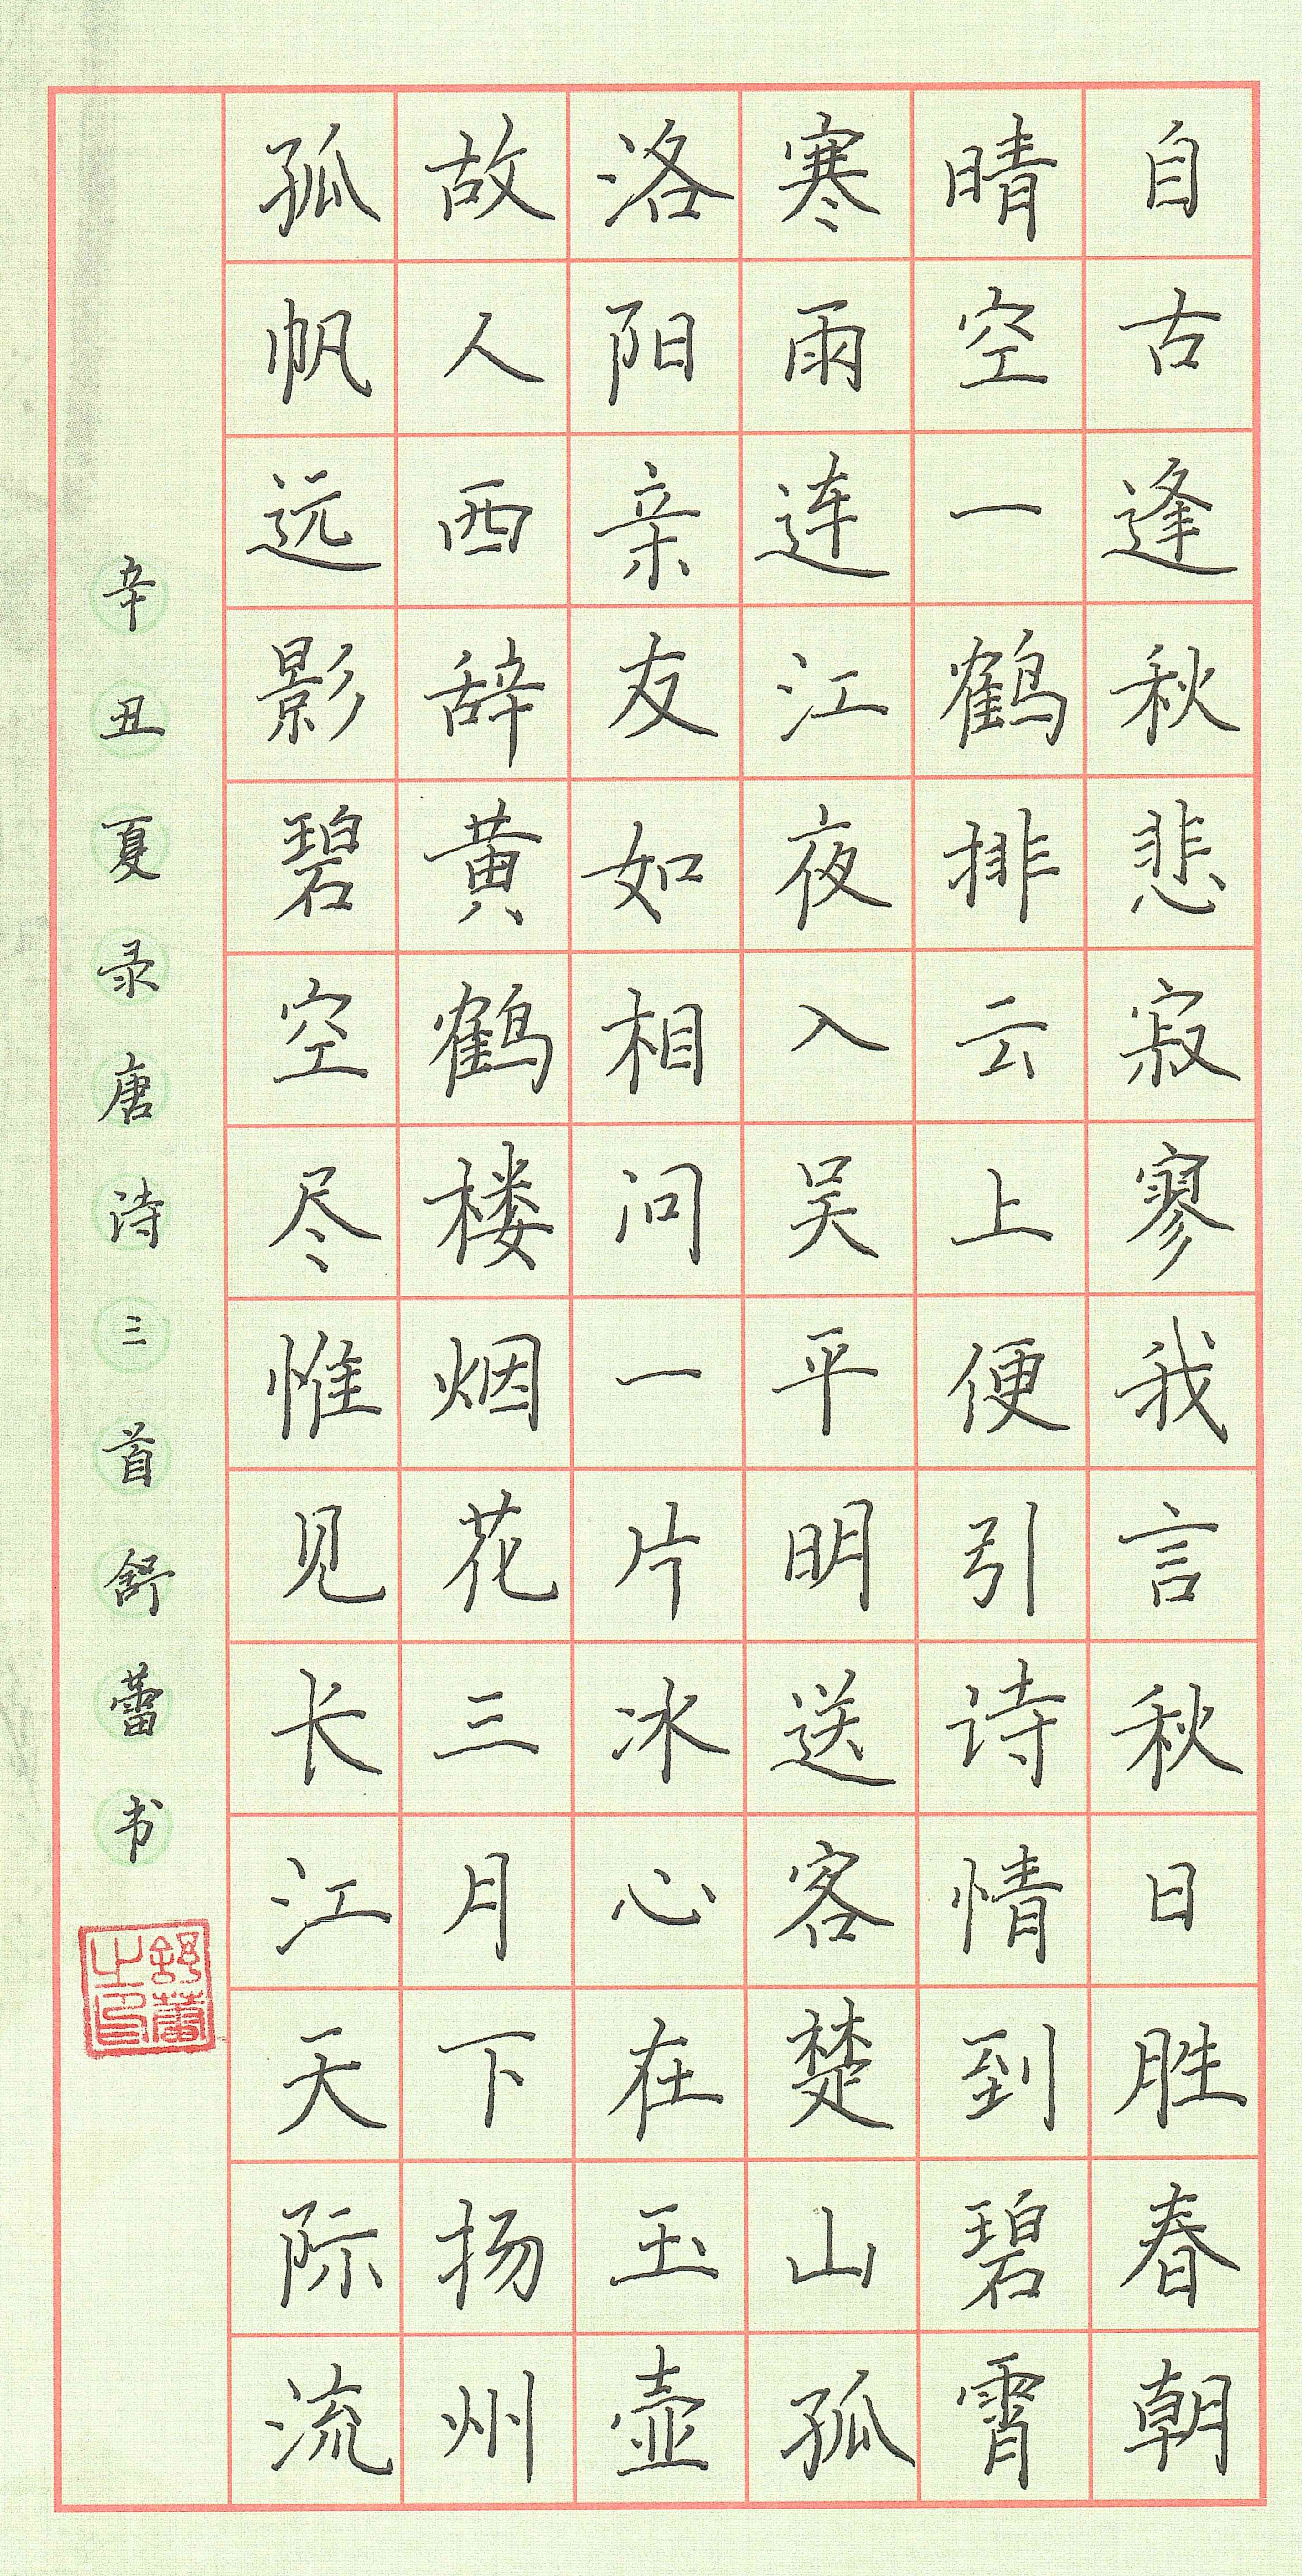 自古逢秋悲寂寥我言秋日胜春朝
晴空一鹤排云上便引诗情到碧霄
寒雨连江夜入吴平明送客楚山孤
洛阳亲友如相问一片冰心在玉壶
故人西辞黄鹤楼烟花三月下扬州
孤帆远影碧空尽惟见长江天际流
辛丑夏录唐诗三首舒蕾书
舒蕾之印